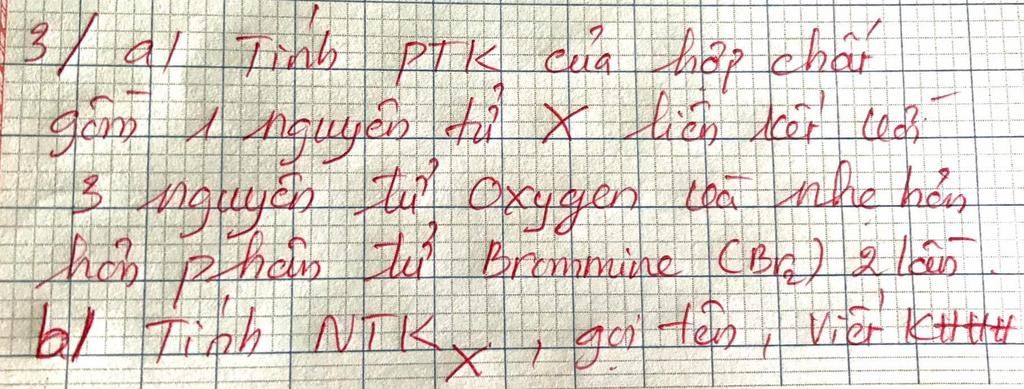 3/ a/ Tính PTK của hợp chất
gồm 1 nguyên tử X liên kết với
3 nguyên tử Oxygen và nhẹ hơn
hơn phân tử Brommine (Br₂) 2 lần.
b/ Tính NTK X, gọi tên, viết KHHH